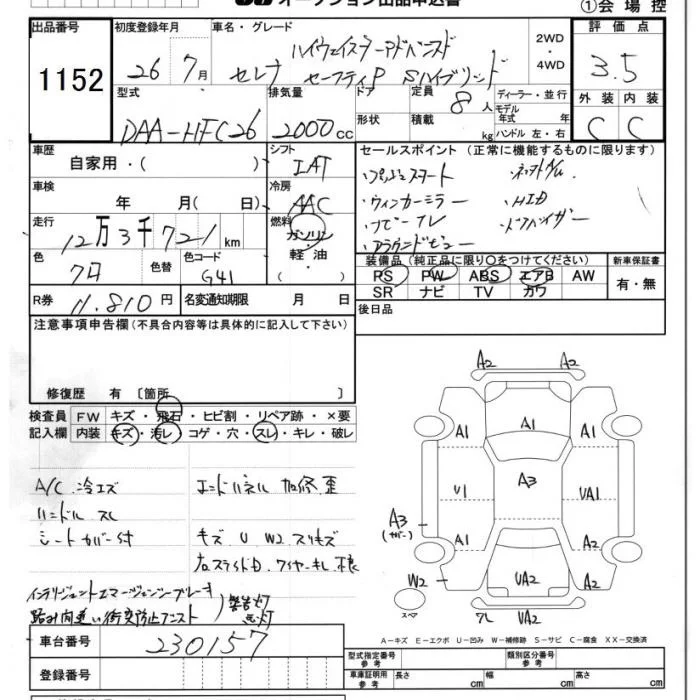 オークション出品申込書
①会場控
出品番号
1152
初度登録年月
26年7月
車名・グレード
ハイウェイスターアドバンスド
セレナ セーフティP Sハイブリッド
2WD
・
4WD
評価点
3.5
外装 内装
C C
型式
DAA-HFC26
排気量
2000cc
ドア
形状
定員
8人
積載 kg
ディーラー・並行
モデル
年式 年
ハンドル 左・右
車歴
自家用・( )
シフト
IAT
車検
年 月( 日)
冷房
AAC
走行
12万3千721km
燃料
ガソリン
・
軽油
色
クロ
色替
色コード
G41
R券
11,810円
名変通知期限 月 日
セールスポイント (正常に機能するものに限ります)
・プッシュスタート
・ウィンカーミラー ・HID
・アラウンドビュー
・ドアバイザー
装備品(純正品に限り○をつけてください)
PS PW ABS エアB AW
SR ナビ TV カワ
新車保証書
有・無
後日品
注意事項申告欄(不具合内容等は具体的に記入して下さい)
修復歴 有 〔箇所 〕
検査員
記入欄
FW キズ・飛石・ヒビ割・リペア跡・×要
内装 キズ・汚レ・コゲ・穴・スレ・キレ・破レ
A/C 冷エズ
ハンドル スレ
シートカバー付
エンドパネル 加修 歪
キズ U W2 スリキズ
右スライドD ワイヤーキレ 不良
インテリジェントエマージェンシーブレーキ
踏み間違い衝突防止アシスト
警告灯
点灯
A2 A2
A1 A1 A1
U1 A3 UA1
A3
(カバー)
A1 A2
W2 UA2 A2
スペア
ワレ UA2
A-キズ E-エクボ U-凹み W-補修跡 S-サビ C-腐食 XX-交換済
車台番号
230157
登録番号
型式指定番号
参考
類別区分番号
参考
車庫証明用
参考
長さ cm
幅 cm
高さ cm